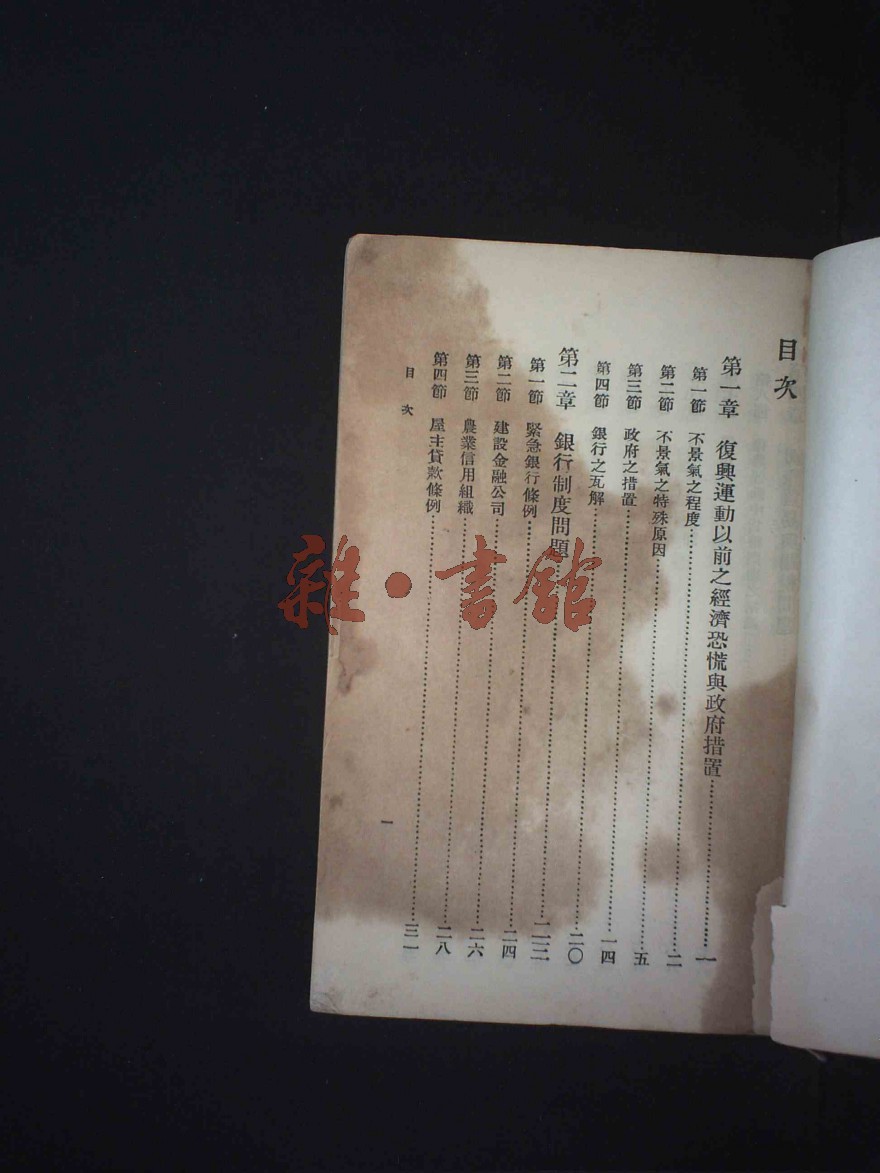 目次
第一章 復興運動以前之經濟恐慌與政府措置……一
第一節 不景氣之程度……二
第二節 不景氣之特殊原因……五
第三節 政府之措置……一四
第四節 銀行之瓦解……二〇
第二章 銀行制度問題……二二
第一節 緊急銀行條例……二四
第二節 建設金融公司……二六
第三節 農業信用組織……二八
第四節 屋主貸款條例……三一
目次 一
雜·書館